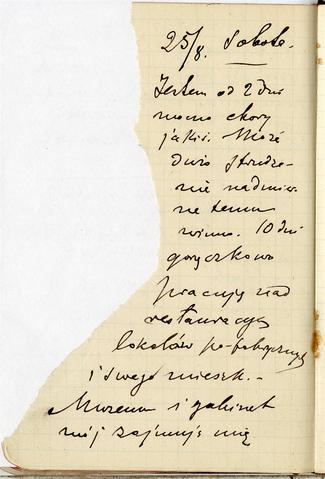 25/8. Sobota.
Jestem od 2 dni
mocno chory
jakiś. Może
duże strudze-
nie nadmier
ne temu
winno. 10 dni
gorączkowo
pracuję nad
restauracyą
lokalów po-fabrycznych
i swego mieszk.-
Muzeum i gabinet
mój zajmuje się